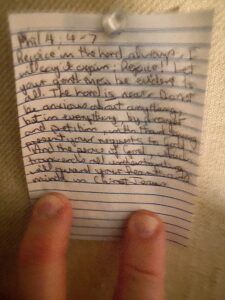 Phil 4:4-7
Rejoice in the Lord always. I
will say it again: Rejoice!! Let
your gentleness be evident to
all. The Lord is near. Do not
be anxious about anything,
but in everything, by prayer
and petition, with
present your requests to God.
And the peace of God, which
transcends all
will guard your hearts and
minds in Christ Jesus.